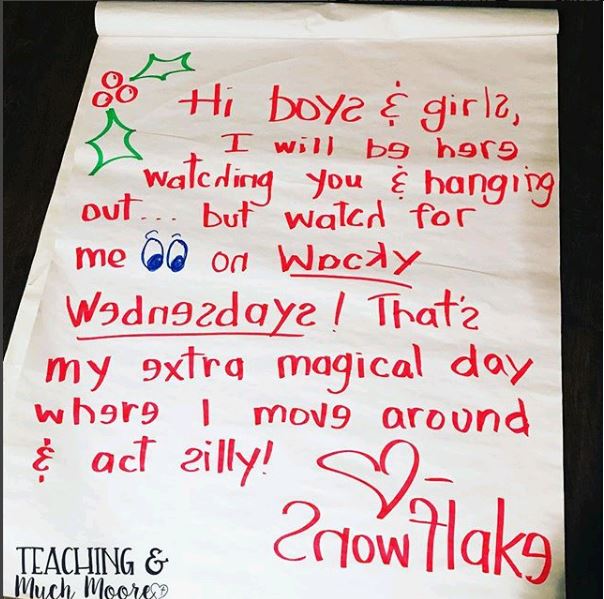 Hi boys & girls,
I will be here
watching you & hanging
out... but watch for
me on Wacky
Wednesdays! That's
my extra magical day
where I move around
& act silly!
Snowflake
TEACHING &
Much Moore